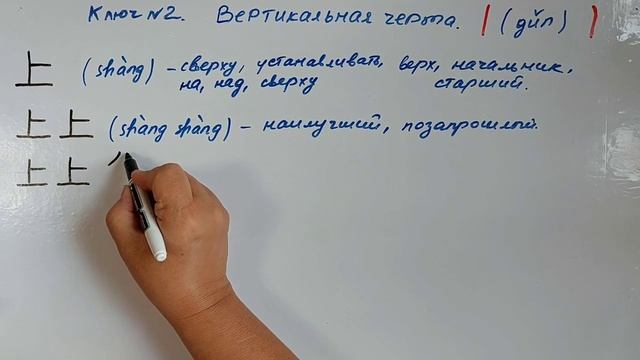 Ключ №2. Вертикальная черта. | (дйл)
上 (shàng) – сверху, устанавливать, верх, начальник,
на, над, сверху старший.
上上 (shàng shàng) – наилучший, позапрошлый.
上上